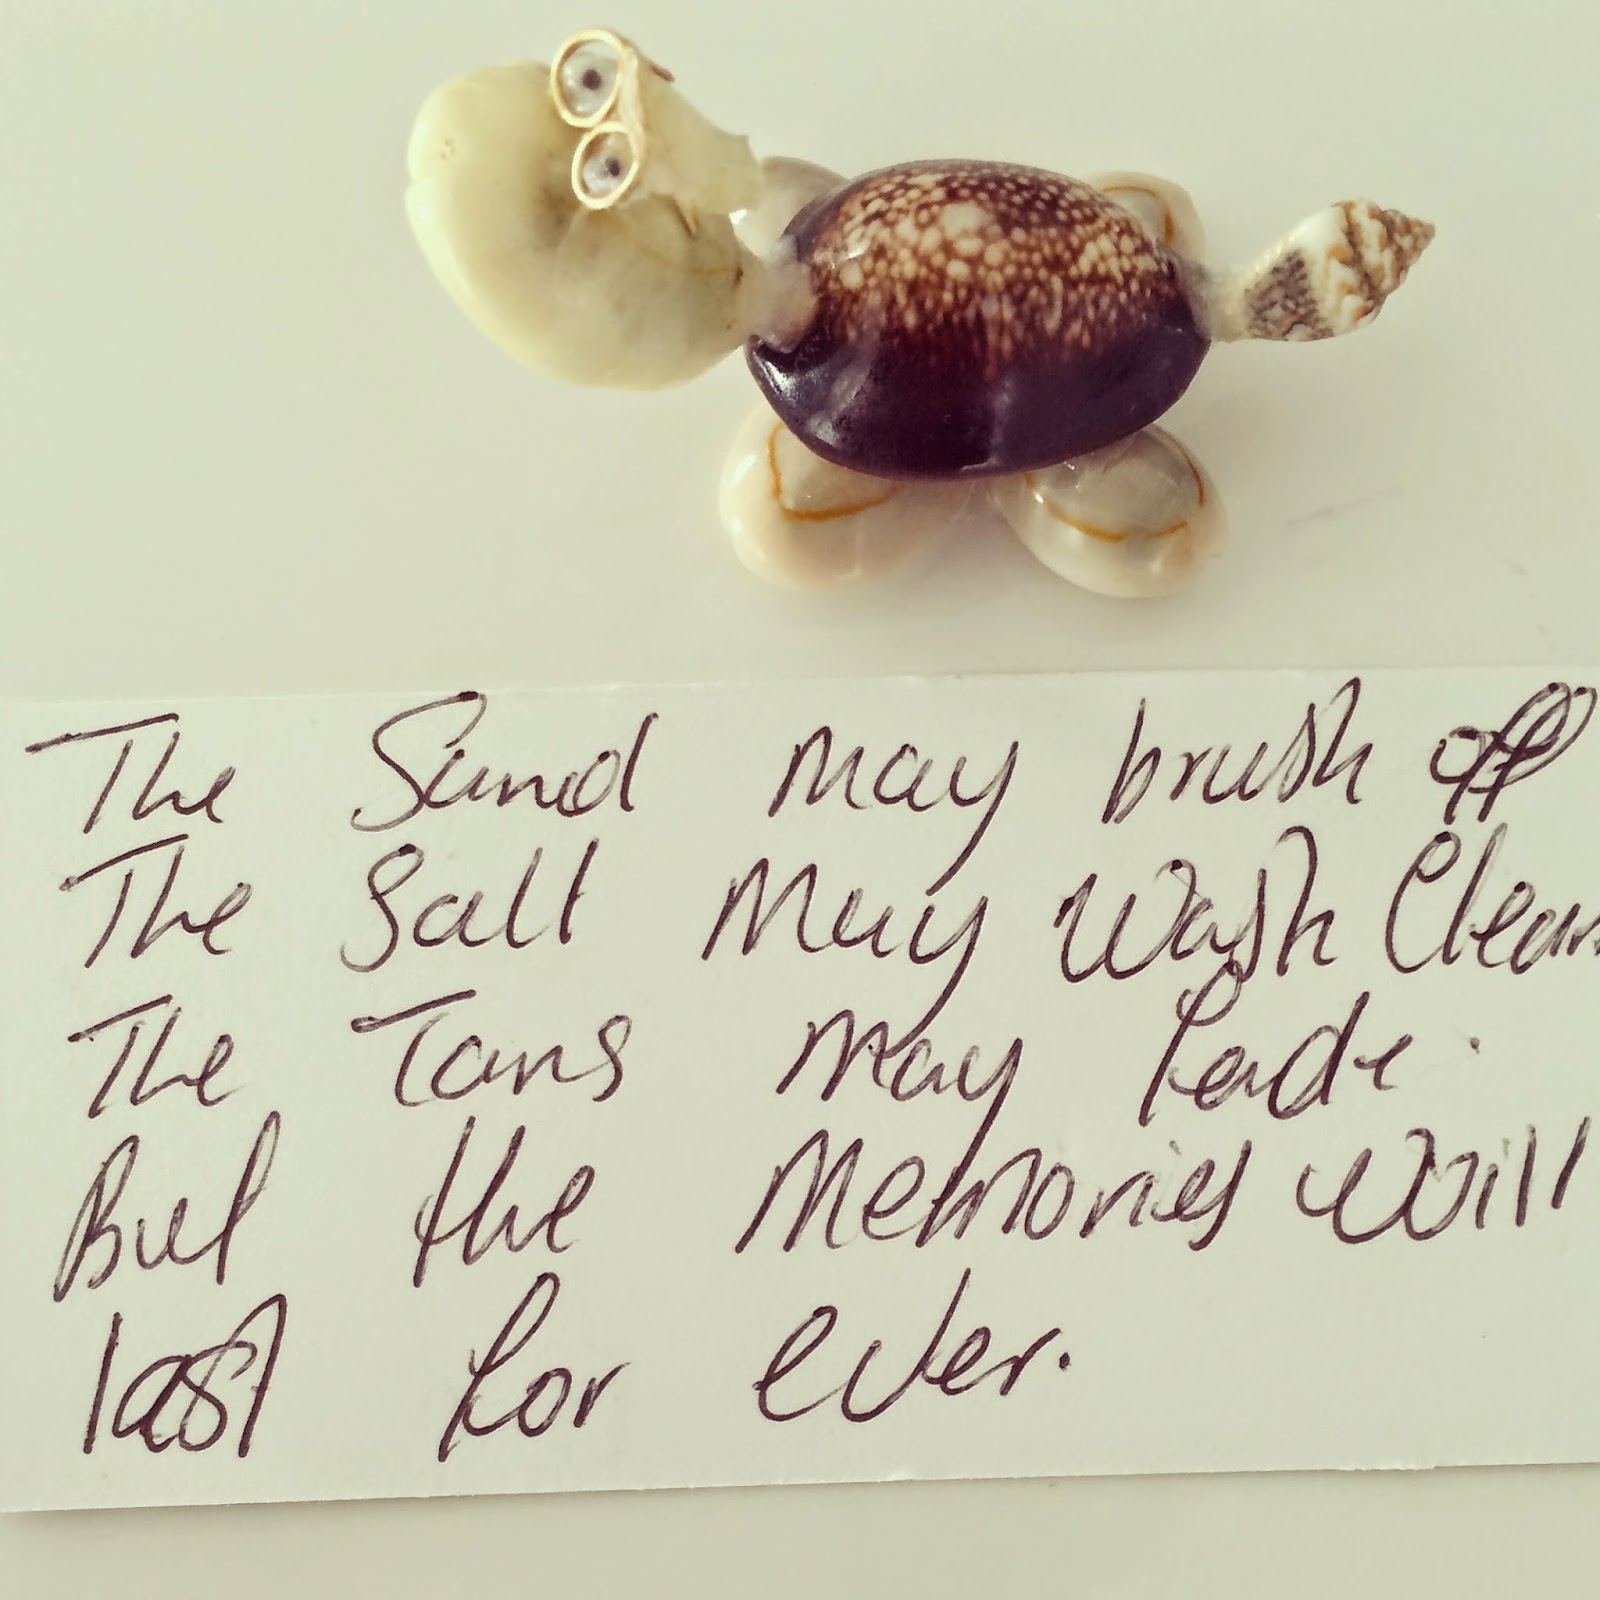 The Sand may brush off
The Salt May Wash Clean
The Tans may fade.
But the Memories will
last for ever.